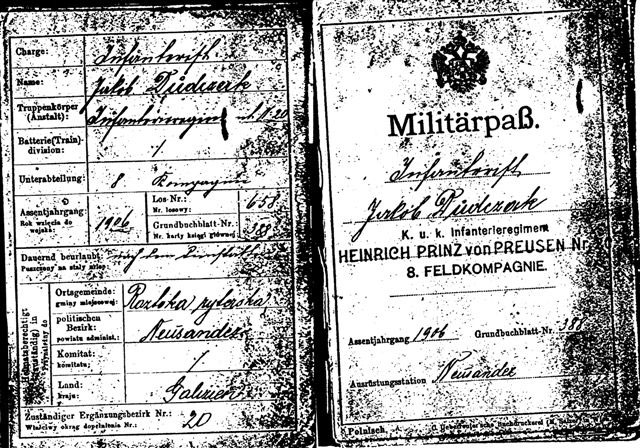 Charge: Infanterist
Name: Jakob Dudczak
Truppenkörper
(Anstalt): Infanterieregim № 20
Batterie(Train)-
division: /
Unterabteilung: 8 Kompagnie
Assentjahrgang:
Rok wzięcia do
wojska: 1906
Los-Nr.:
Nr. losowy: 658
Grundbuchblatt-Nr.
Nr. karty księgi głównej 388
Dauernd beurlaubt
Puszczony na stały urlop
Heimatsberechtigt
(zuständig) in
Ortsgemeinde:
gminy miejscowej: Roztoka ryterska
politischen
Bezirk:
powiatu administ.: Neusandez
Komitat:
komitatu: /
Land:
kraju: Galizien
Zuständiger Ergänzungsbezirk Nr.:
Właściwy okręg dopełnienia Nr.: 20
Militärpaß.
Infanterist
Jakob Dudczak
K. u. k. Infanterieregiment
HEINRICH PRINZ von PREUSEN Nr. 20
8. FELDKOMPAGNIE.
Assentjahrgang 1906 Grundbuchblatt-Nr. 388
Ausrüstungsstation Neusandez
Polnisch.